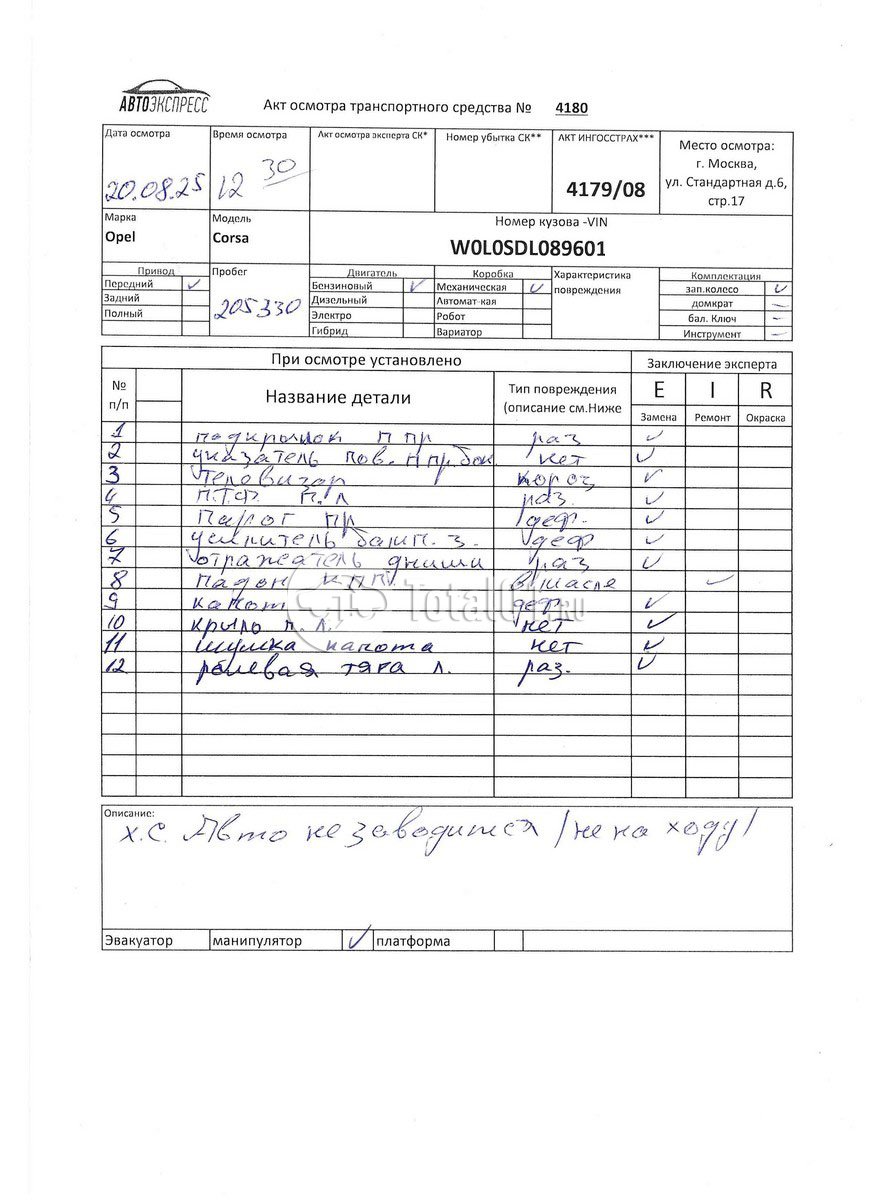 АВТОЭКСПРЕСС
Акт осмотра транспортного средства № 4180
Дата осмотра
20.08.25
Время осмотра
12 30
Акт осмотра эксперта СК*
Номер убытка СК**
АКТ ИНГОССТРАХ***
4179/08
Место осмотра:
г. Москва,
ул. Стандартная д.6,
стр.17
Марка
Opel
Модель
Corsa
Номер кузова -VIN
W0L0SDL089601
Привод
Передний ✓
Задний
Полный
Пробег
205330
Двигатель
Бензиновый ✓
Дизельный
Электро
Гибрид
Коробка
Механическая ✓
Автомат-кая
Робот
Вариатор
Характеристика
повреждения
Комплектация
зап.колесо ✓
домкрат —
бал. Ключ —
Инструмент —
При осмотре установлено
Заключение эксперта
№
п/п
Название детали
Тип повреждения
(описание см.Ниже
E I R
Замена Ремонт Окраска
1 подкрылок п пр раз ✓
2 указатель пов. п пр. бок нет ✓
3 телевизор короз ✓
4 П.Т.Ф. п.л раз. ✓
5 Парог пр деф. ✓
6 усилитель бамп. з. деф ✓
7 отражатель днища раз ✓
8 падон КПП в масле ✓
9 капот деф. ✓
10 крыло п.л. нет ✓
11 шумка капота нет ✓
12 рулевая тяга л. раз. ✓
Total01.RU
Описание:
Х.С. Авто не заводится /не на ходу/
Эвакуатор манипулятор ✓ платформа